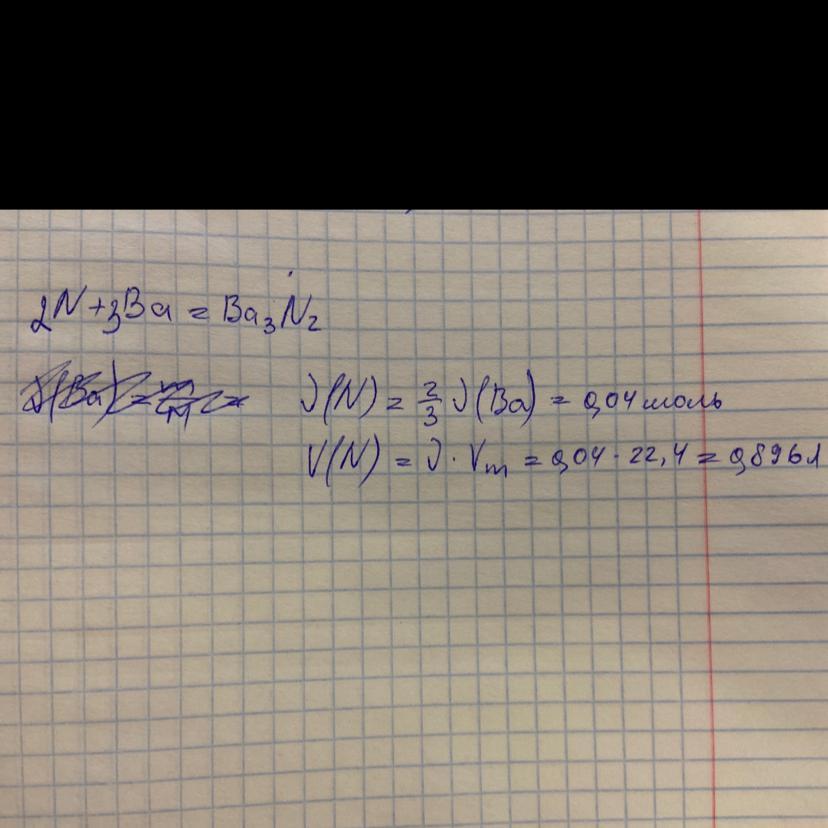 2N + 3Ba = Ba₃N₂
ν(N) = 2/3 ν(Ba) = 0,04 моль
V(N) = ν · Vm = 0,04 · 22,4 = 0,896 л